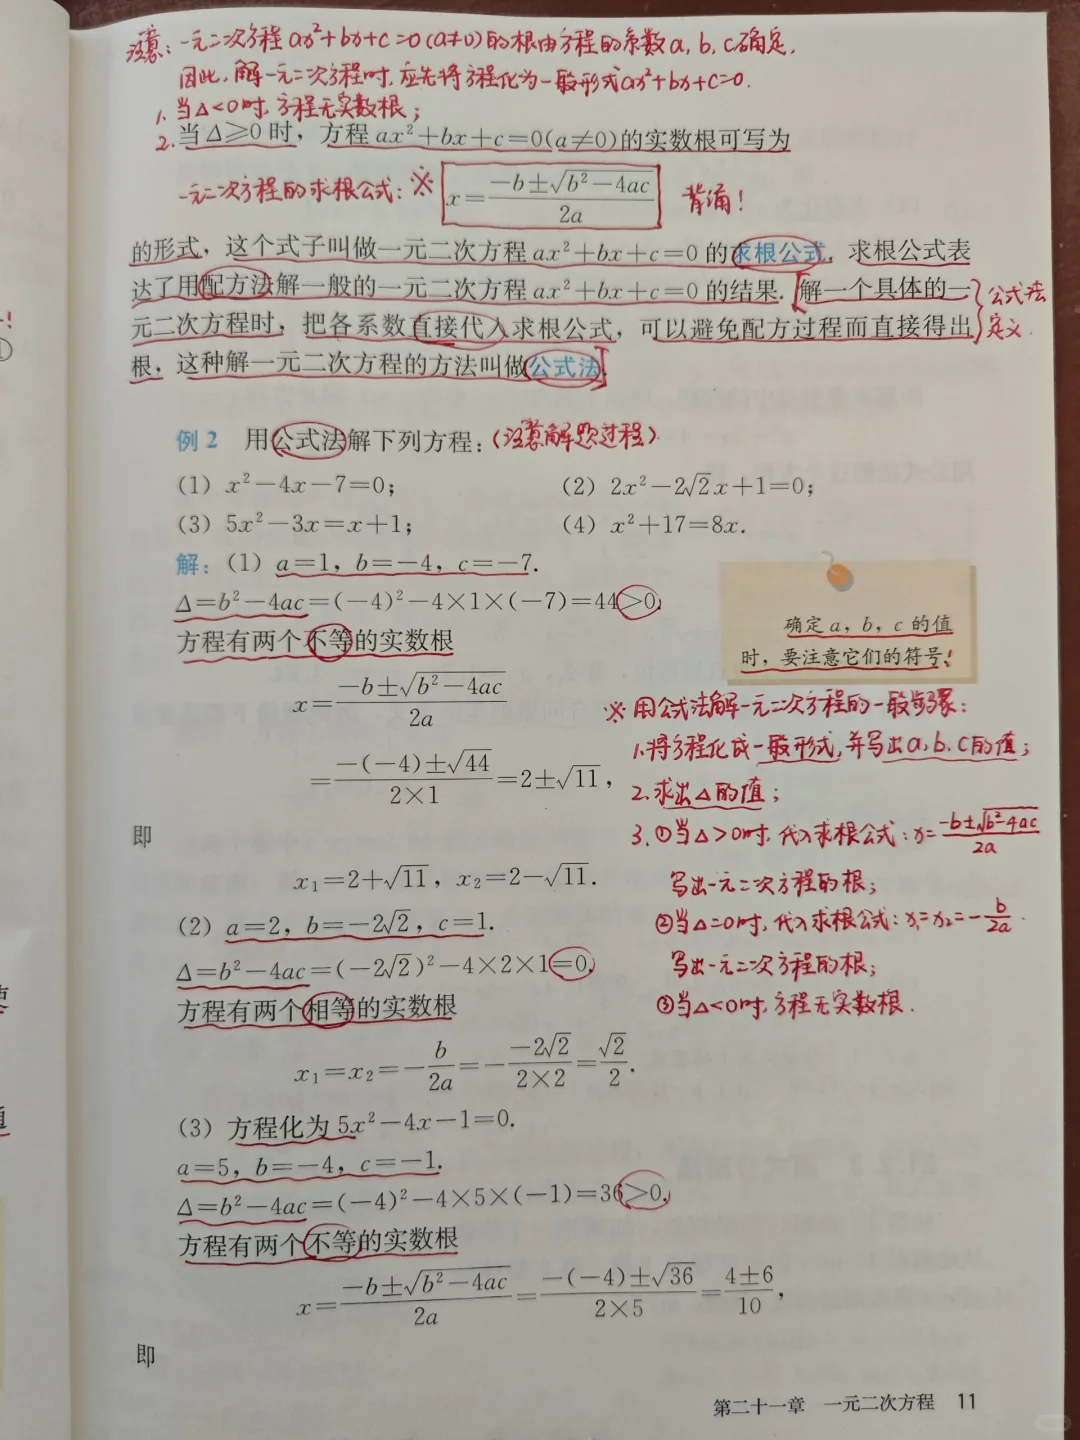 注意：一元二次方程ax²+bx+c=0(a≠0)的根由方程的系数a，b，c确定.
因此，解一元二次方程时，应先将方程化为一般形式ax²+bx+c=0.
1.当Δ<0时，方程无实数根；
2.当Δ≥0时，方程ax²+bx+c=0(a≠0)的实数根可写为
一元二次方程的求根公式：※ x=(-b±√(b²-4ac))/(2a) 背诵！
的形式，这个式子叫做一元二次方程ax²+bx+c=0的求根公式.求根公式表
达了用配方法解一般的一元二次方程ax²+bx+c=0的结果.[解一个具体的一
元二次方程时，把各系数直接代入求根公式，可以避免配方过程而直接得出
根，这种解一元二次方程的方法叫做公式法.]
公式法
定义.
例2 用公式法解下列方程：(注意解题过程)
(1) x²-4x-7=0； (2) 2x²-2√2x+1=0；
(3) 5x²-3x=x+1； (4) x²+17=8x.
解：(1) a=1，b=-4，c=-7.
Δ=b²-4ac=(-4)²-4×1×(-7)=44>0.
方程有两个不等的实数根
x=(-b±√(b²-4ac))/(2a)
=(-(-4)±√44)/(2×1)=2±√11，
即
x₁=2+√11，x₂=2-√11.
(2) a=2，b=-2√2，c=1.
Δ=b²-4ac=(-2√2)²-4×2×1=0.
方程有两个相等的实数根
x₁=x₂=-b/(2a)=-(-2√2)/(2×2)=√2/2.
(3) 方程化为5x²-4x-1=0.
a=5，b=-4，c=-1.
Δ=b²-4ac=(-4)²-4×5×(-1)=36>0.
方程有两个不等的实数根
x=(-b±√(b²-4ac))/(2a)=(-(-4)±√36)/(2×5)=(4±6)/10，
即
确定a，b，c的值
时，要注意它们的符号！
※ 用公式法解一元二次方程的一般步骤：
1.将方程化成一般形式，并写出a，b，c的值；
2.求出Δ的值；
3.①当Δ>0时，代入求根公式：x=(-b±√(b²-4ac))/(2a)
写出一元二次方程的根；
②当Δ=0时，代入求根公式：x₁=x₂=-b/(2a).
写出一元二次方程的根；
③当Δ<0时，方程无实数根.
第二十一章 一元二次方程 11